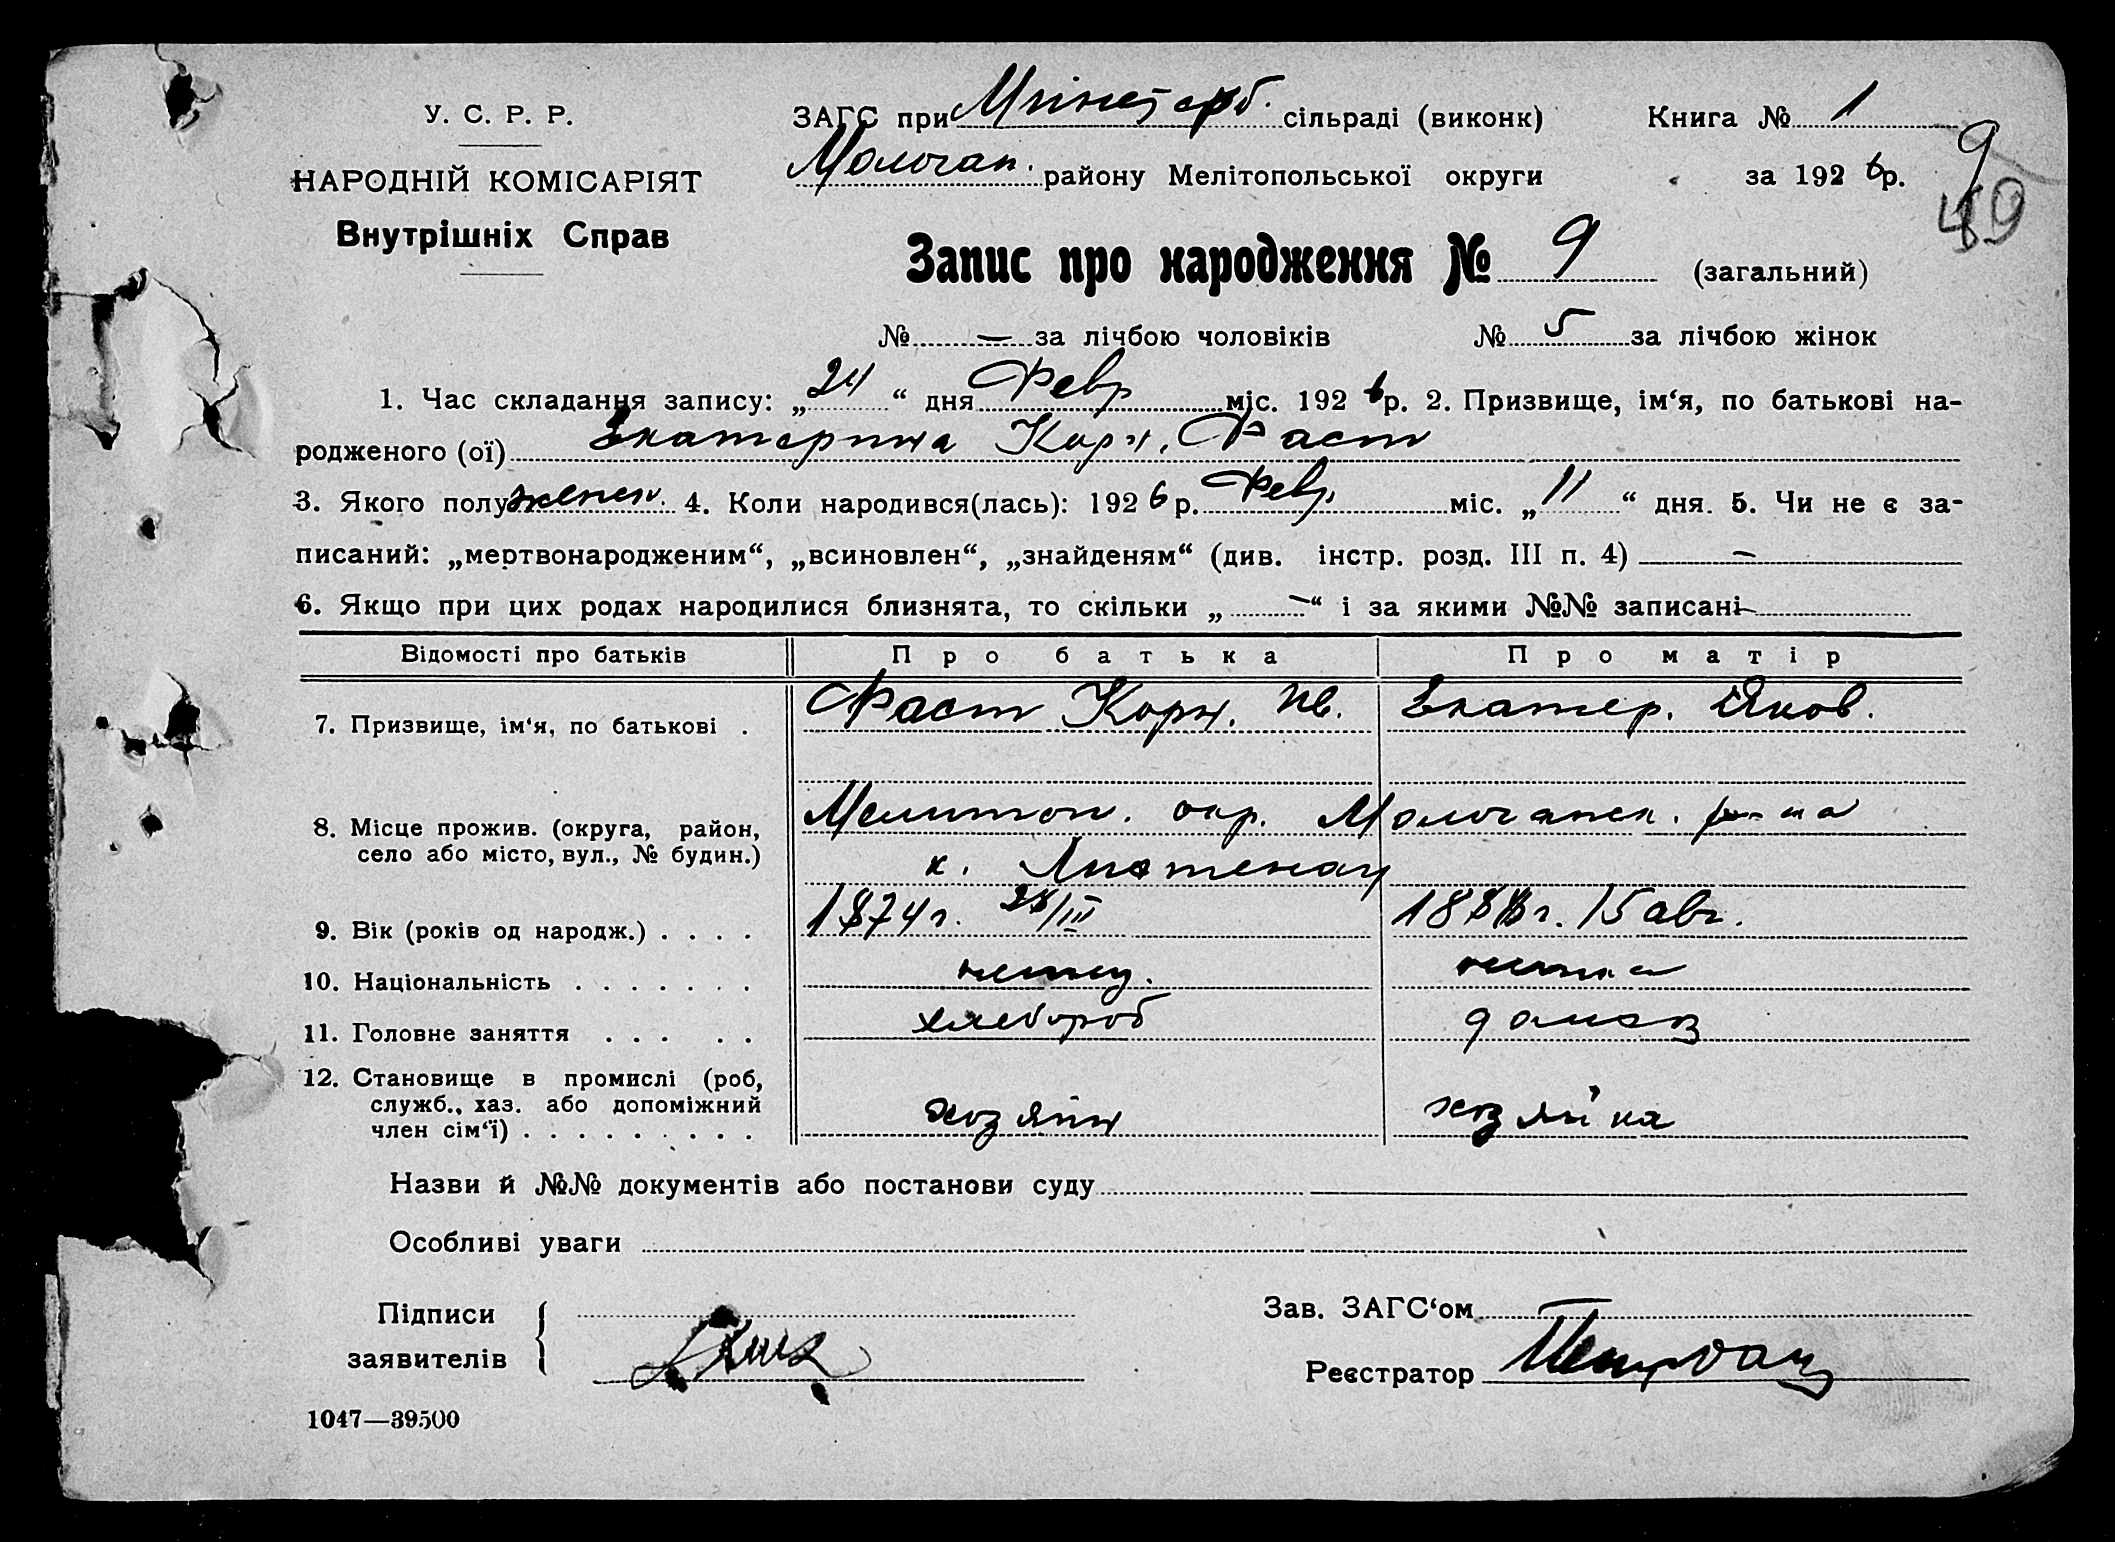 У. С. Р. Р.
НАРОДНІЙ КОМІСАРІЯТ
Внутрішніх Справ
ЗАГС при Мінстерб. сільраді (виконк)
Книга № 1
Молочан. району Мелітопольської округи
за 1926 р.
9
49
Запис про народження № 9 (загальний)
№ — за лічбою чоловіків № 5 за лічбою жінок
1. Час складання запису: „24“ дня Февр міс. 1926 р. 2. Призвище, ім‘я, по батькові на-
родженого (ої) Екатерина Корн. Фаст
3. Якого полу женск. 4. Коли народився(лась): 1926 р. Февр. міс. „11“ дня. 5. Чи не є за-
писаний: „мертвонародженим“, „всиновлен“, „знайденям“ (див. інстр. розд. III п. 4) —
6. Якщо при цих родах народилися близнята, то скільки „—“ і за якими №№ записані —
Відомості про батьків Про батька Про матір
7. Призвище, ім‘я, по батькові . Фаст Корн. Ив. Екатер. Яков.
8. Місце прожив. (округа, район, Мелитоп. окр. Молочанск. р-на
село або місто, вул., № будин.) к. Лихтенау
9. Вік (років од народж.) . . . . 1874 г. /III 15 авг.
10. Національність . . . . . . . немец. немка
11. Головне заняття . . . . . хлебороб домхоз
12. Становище в промислі (роб,
служб., хаз. або допоміжний
член сім‘ї) . . . . . . . . . хозяин хозяйка
Назви й №№ документів або постанови суду
Особливі уваги
Підписи
заявителів
Зав. ЗАГС‘ом
Реєстратор
1047—39500